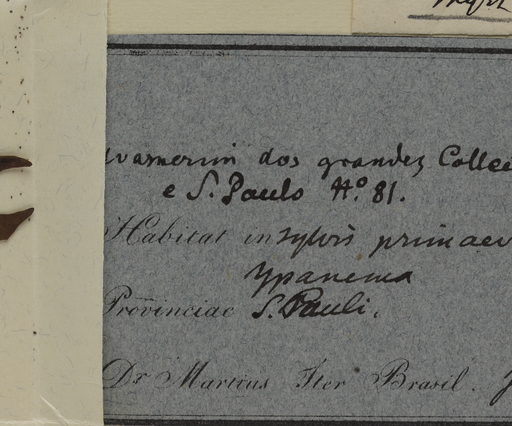 dos grandes Collec
e S. Paulo No. 81.
Habitat in sylvis primaev
Ypanema
Provinciae S. Pauli.
Dr Martius Iter Brasil.